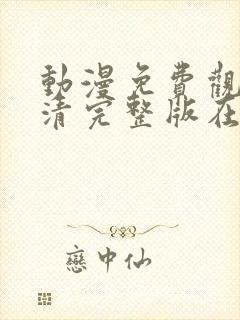 動漫免費觀
清完整版在
戀中仙